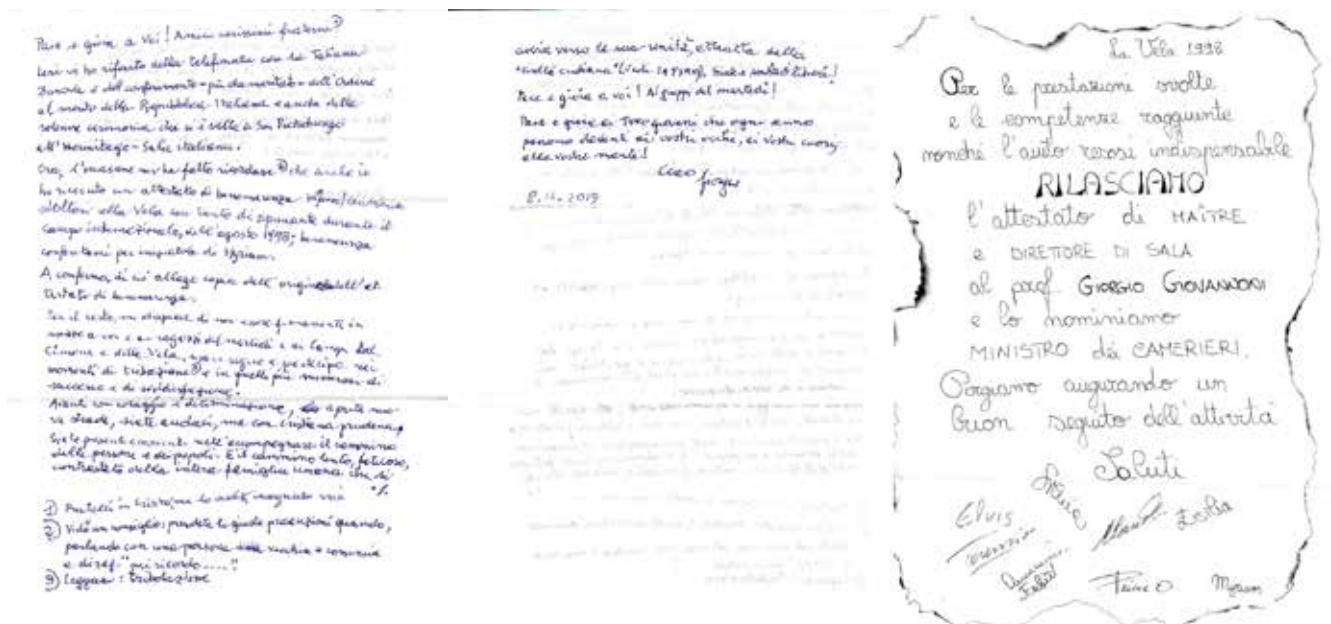 Pace e gioia a Voi! Amici carissimi fraterni 1)
Ieri vi ho riferito della telefonata con la Tatiana
e del conferimento - più che meritato - dell'Ordine
al merito della Repubblica Italiana e anche della
solenne cerimonia che si è svolta a San Pietroburgo
all'Hermitage - Sale italiane.
Ora, l'occasione mi ha fatto ricordare 2) che anche io
ho ricevuto un attestato di benemerenza
alla Vela con tanto di durante il
campo internazionale, dell'agosto 1998; benemerenza
A conferma di ciò allego copia dell'originale dell'at
testato di benemerenza.
Per il resto, mi dispiace di non essere fisicamente in
mezzo a voi e ai ragazzi del martedì e ai campi del
Cimone e della Vela, ma vi seguo e partecipo nei
momenti di tribazione 3) e in quelli più numerosi di
successo e di soddisfazione.
Avanti con coraggio e determinazione, aprite nuo-
ve strade, siete audaci, ma con cristiana prudenza,
siete presenti nell'accompagnare il cammino
delle persone e dei popoli. È il cammino lento, faticoso,
contrastato della intera famiglia umana che si
1) Fratelli in Cristo,
2) Vidi un consiglio: prendete le giuste precauzioni quando,
parlando con una persona vecchia comincia
a dire: "mi ricordo.....!"
3) Leggasi: tribolazione
avvia verso la sua unità, attratta dalla
Pace e gioia a voi! Ai gruppi del martedì!
Pace e gioia ai giovani che ogni anno
passano davanti ai vostri occhi, ai vostri cuori,
alle vostre menti!
Ciao
Giorgio
2019
La Vela 1998
Per le prestazioni svolte
e le competenze raggiunte
nonché l'aiuto resosi indispensabile
RILASCIAMO
l'attestato di MAÎTRE
e DIRETTORE DI SALA
al prof. GIORGIO GIOVANNONI
e lo nominiamo
MINISTRO dei CAMERIERI.
Porgiamo augurando un
buon seguito dell'attività
Saluti
Elvis
Myriam